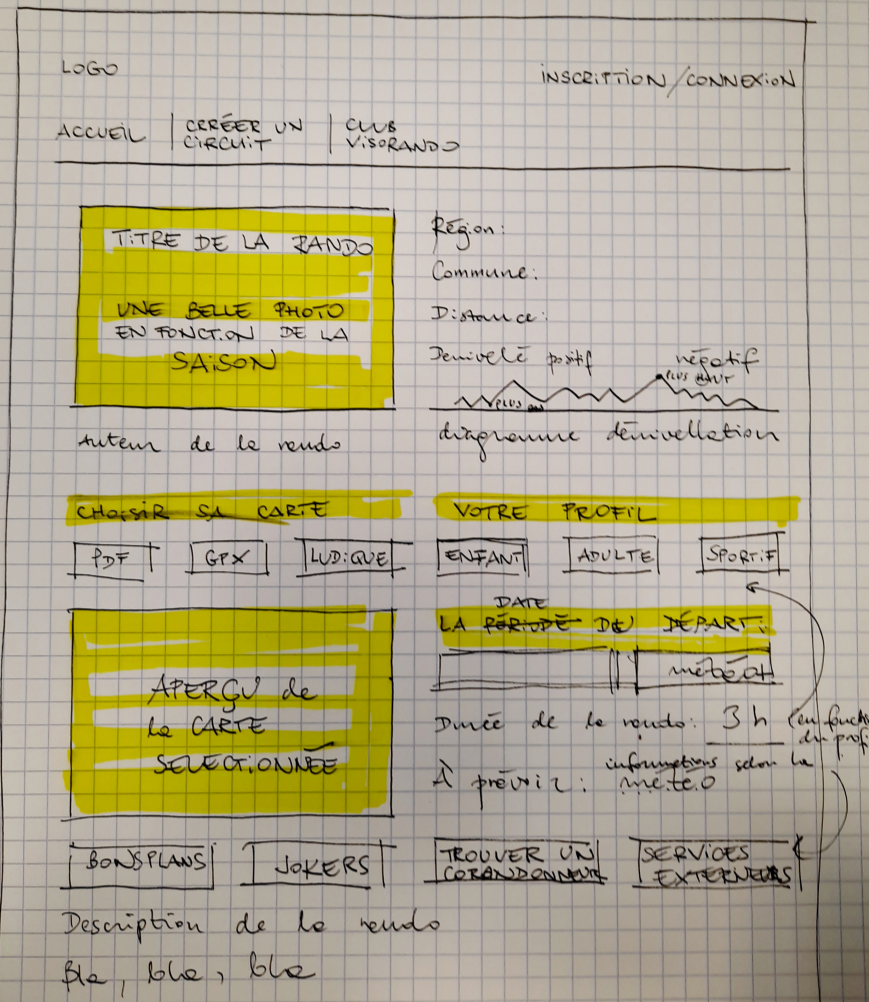 LOGO
INSCRIPTION/CONNEXION
ACCUEIL | CRRÉER UN CIRCUIT | CLUB VISORANDO
TITRE DE LA RANDO
UNE BELLE PHOTO
EN FONCTION DE LA
SAISON
Auteur de la rando
Région:
Commune:
Distance:
Dénivelé positif négatif
PLUS HAUT
PLUS
diagramme dénivellation
CHOISIR SA CARTE
PDF
GPX
LUDIQUE
APERÇU de
la CARTE
SELECTIONNÉE
VOTRE PROFIL
ENFANT
ADULTE
SPORTIF
DATE
LA PÉRIODE DU DÉPART:
météo
Durée de la rando: 3h (en fonct
du profi
informations selon la
À prévoir: météo
BONSPLANS
JOKERS
TROUVER UN
CORANDONNEUR
SERVICES
EXTERNEURS
Description de la rando
Bla, bla, bla